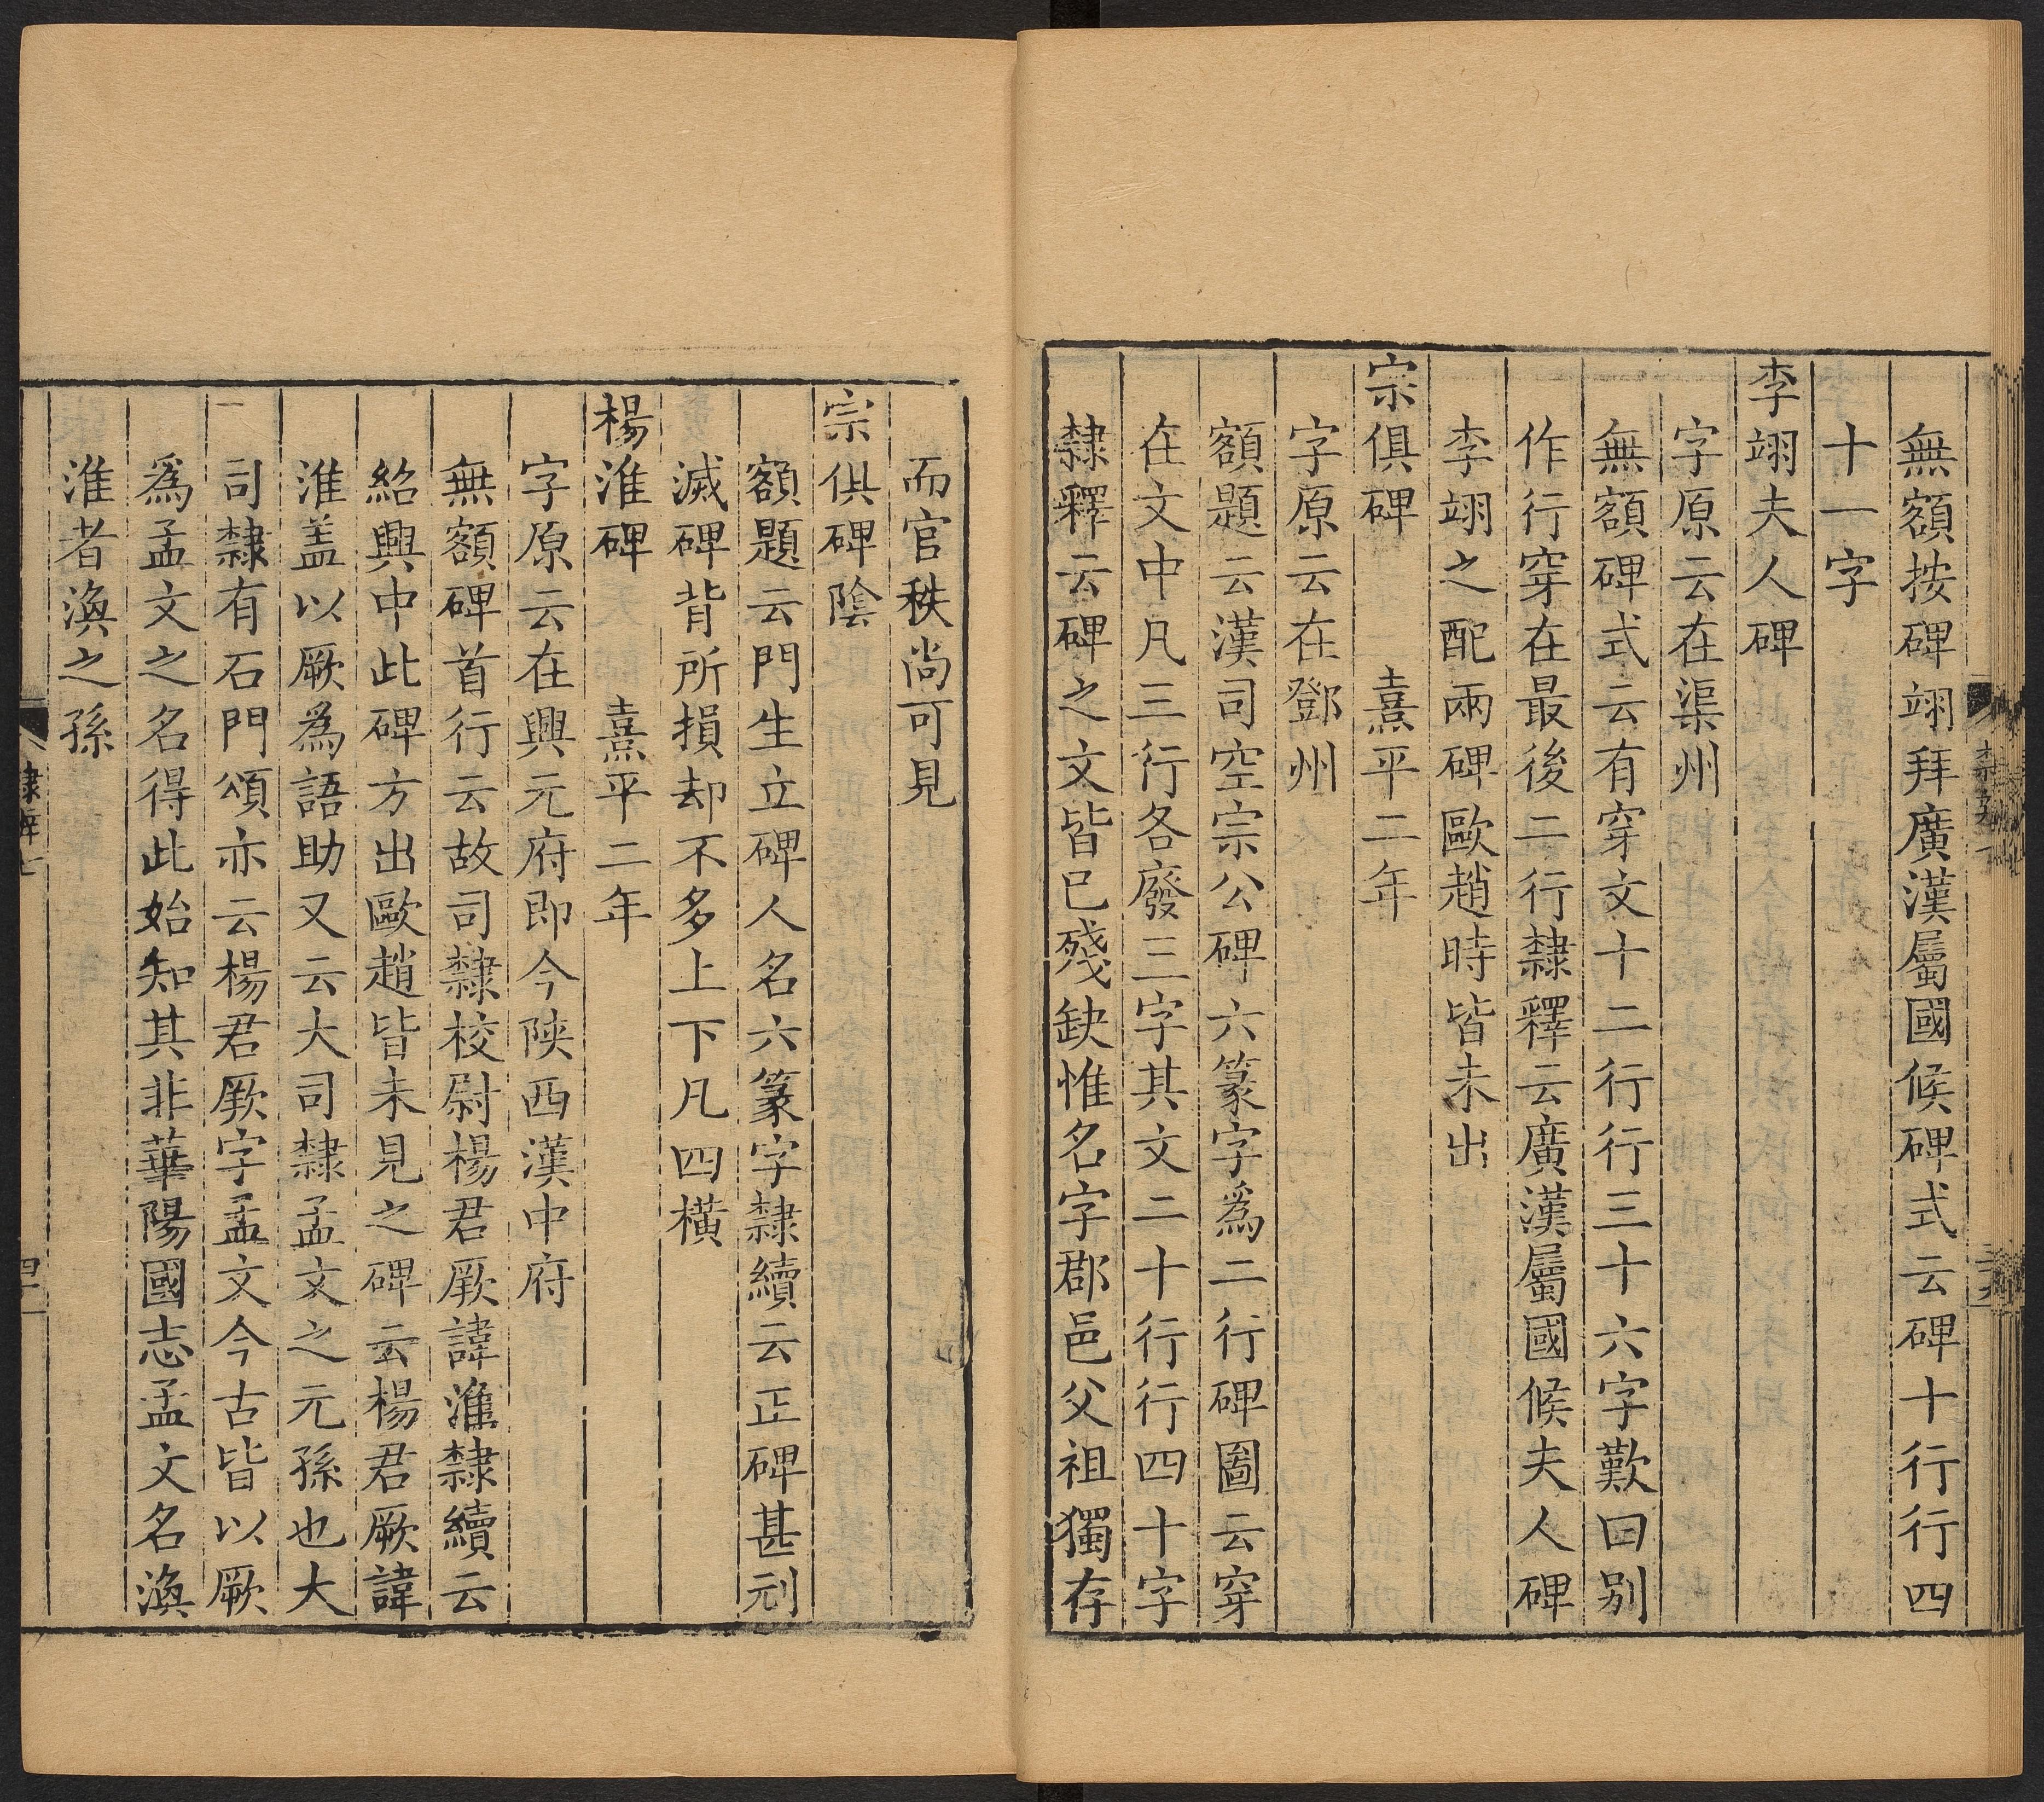 無額按碑翊拜廣漢屬國候碑式云碑十行行四
十一字
李翊夫人碑
字原云在渠州
無額碑式云有穿文十二行行三十六字歎曰别
作行穿在最後二行隸釋云廣漢屬國候夫人碑
李翊之配兩碑歐趙時皆未出
宗俱碑 熹平二年
字原云在鄧州
額題云漢司空宗公碑六篆字爲二行碑圖云穿
在文中凡三行各廢三字其文二十行行四十字
隸釋云碑之文皆已殘缺惟名字郡邑父祖獨存
而官秩尚可見
宗俱碑陰
額題云門生立碑人名六篆字隸續云正碑甚刓
滅碑背所損却不多上下凡四橫
楊淮碑 熹平二年
字原云在興元府即今陝西漢中府
無額碑首行云故司隸校尉楊君厥諱淮隸續云
紹興中此碑方出歐趙皆未見之碑云楊君厥諱
淮盖以厥爲語助又云大司隸孟文之元孫也大
司隸有石門頌亦云楊君厥字孟文今古皆以厥
爲孟文之名得此始知其非華陽國志孟文名渙
淮者渙之孫
隸辨七
四十一